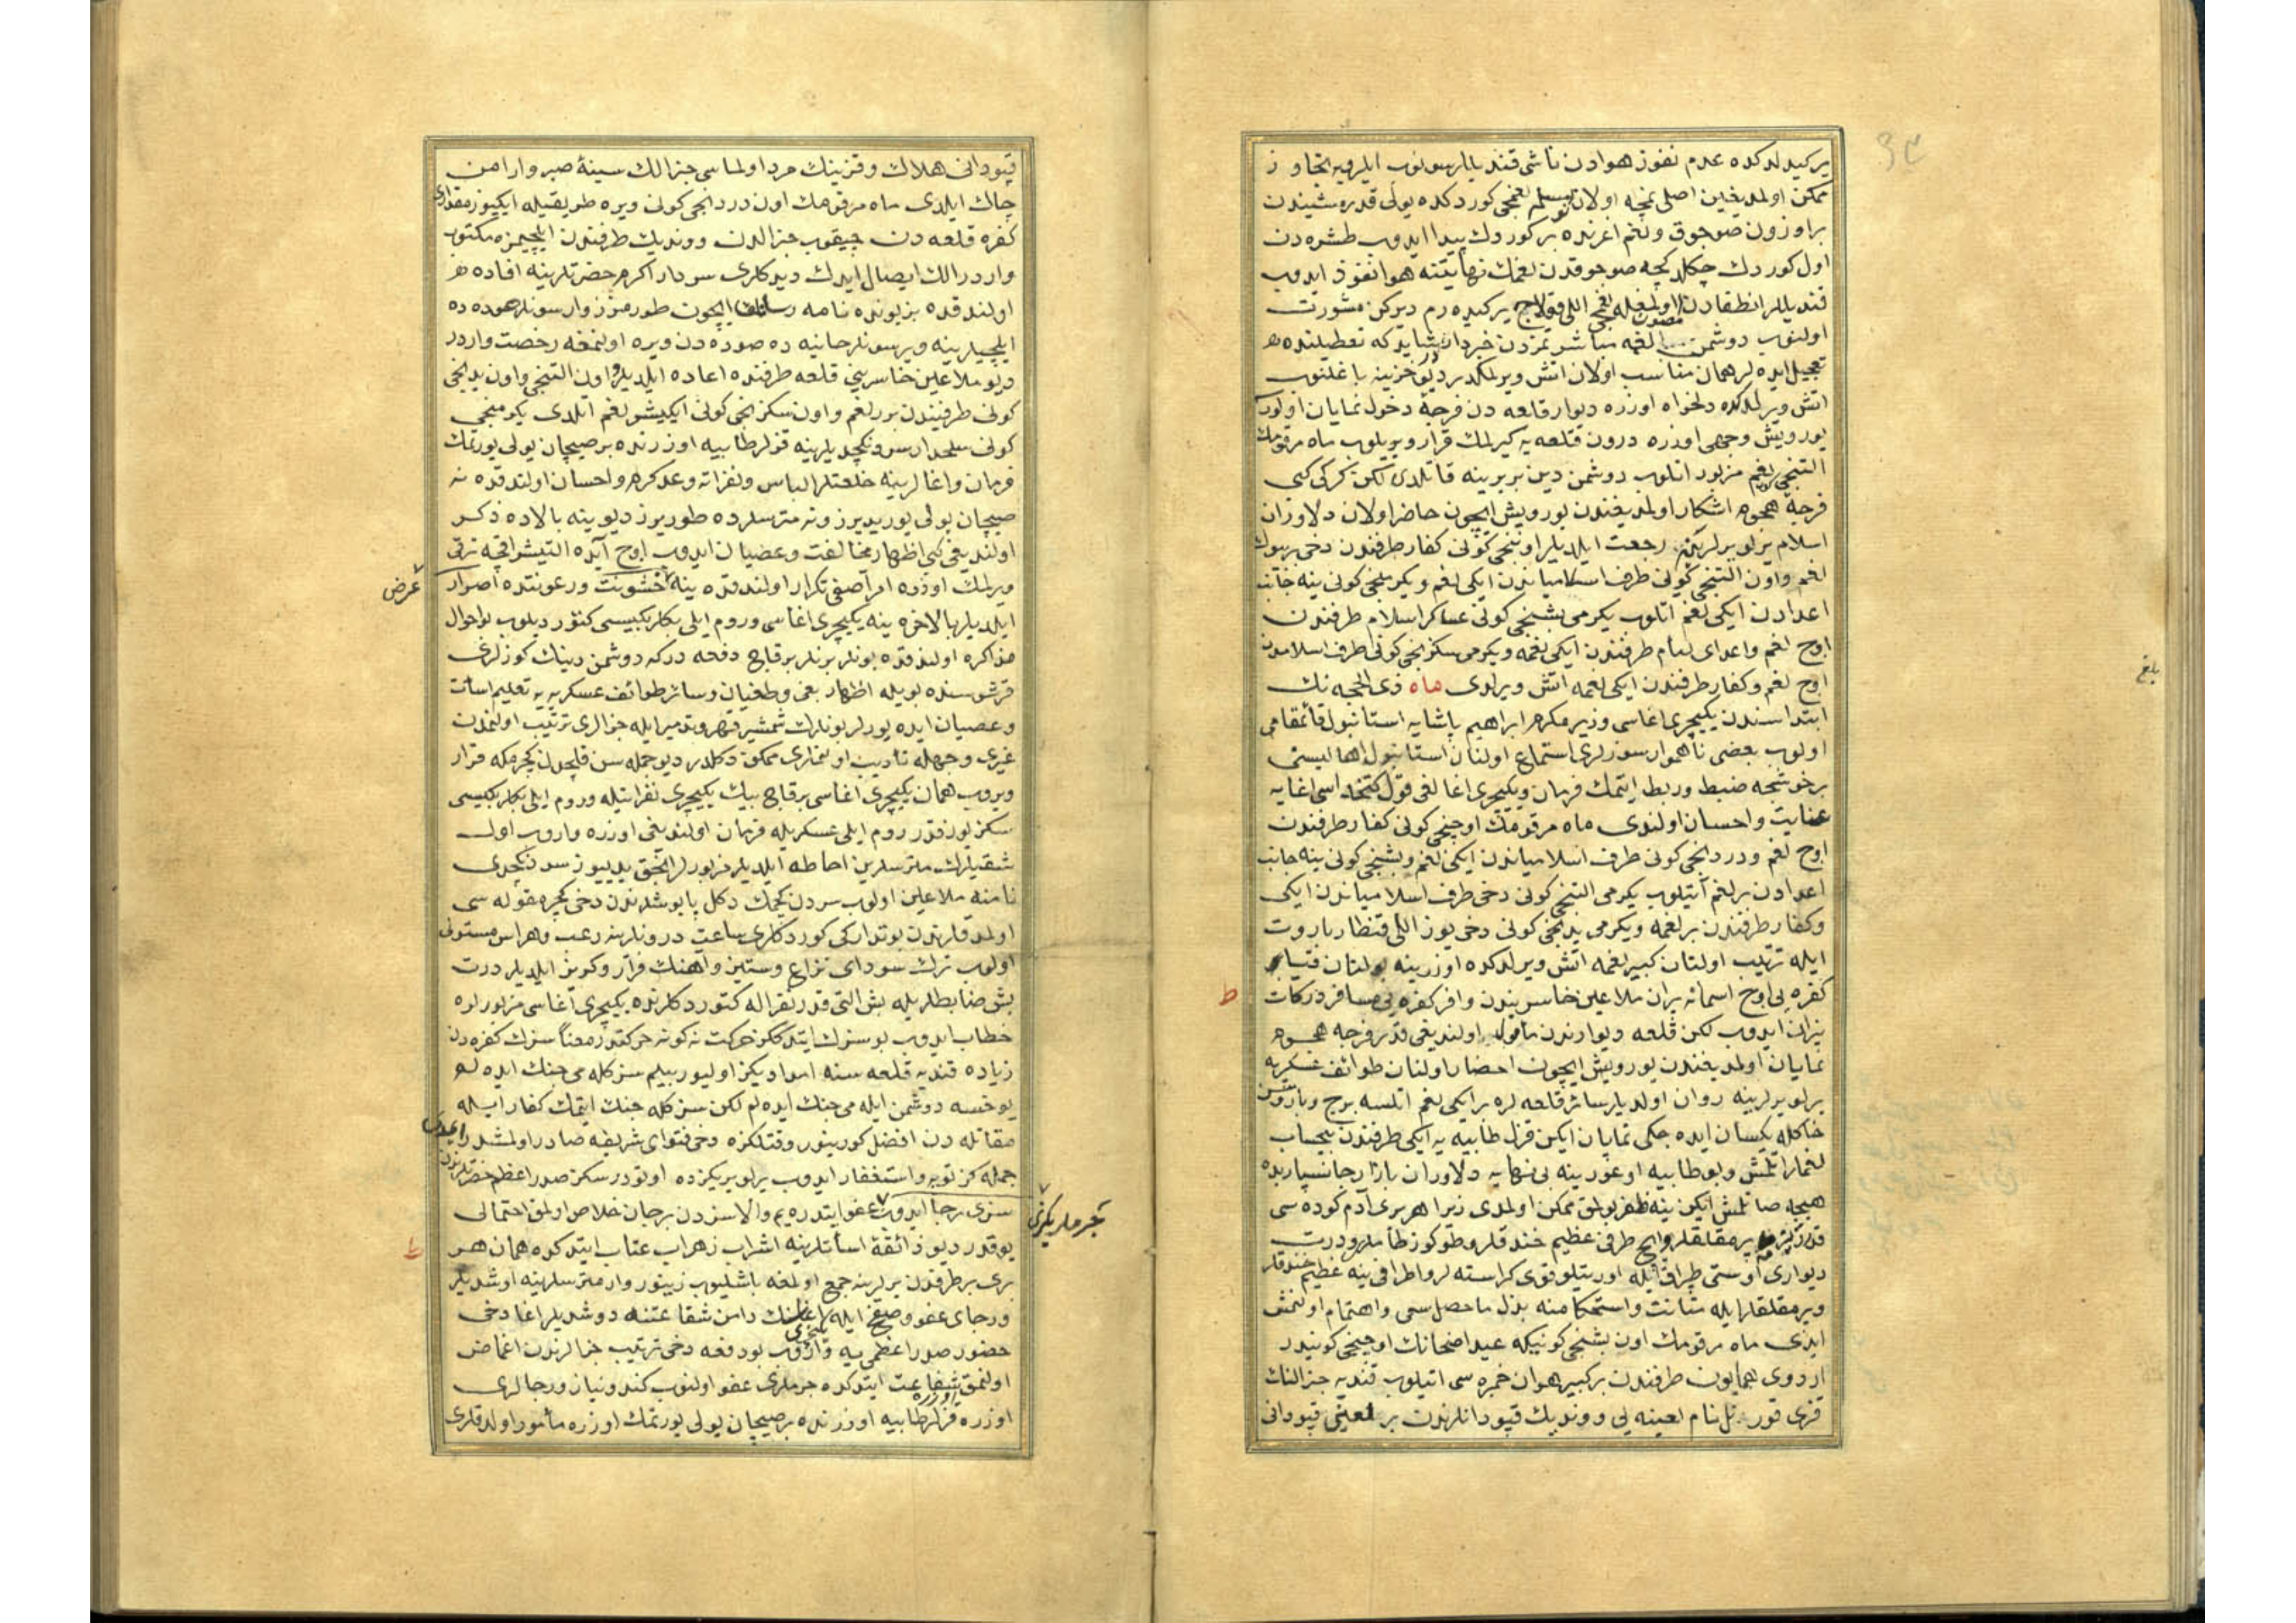 یر کیدلدکده عدم نفوذ هوادن ناشی قندیللر سونوب ایلرویه تجاوز
ممکن اولمدیغین اصلی نمچه اولان نومسلم لغمجی کوردکده یولی قدر مشیندن
بر اوزون صوجوق و لغم اغزنده بر کوردك پیدا ایدوب طشره دن
اول کوردك چکلدکجه صوجوقدن لغمك نهایتنه هوا نفوذ ایدوب
قندیللر انطفادن مصون اولمغله لغمجی اللی قولاج یر کیده رم دیرکن مشورت
اولنوب دوشمن لغمه مباشرتمزدن خبردار شاید که تعطیلنده
تعجیل ایده لر همان مناسب اولان اتش ویرلمکدر دیو خزینه باغلنوب
اتش ویرلدکده دلخواه اوزره دیوار قلعه دن فرجهٔ دخول نمایان اولور
یورویش وجهی اوزره درون قلعه یه کیرلمك قرار ویریلوب ماه مرقومك
التنجی کونی لغم مزبور اتلوب دوشمن دین بربرینه قاتلدی لکن کرکی کبی
فرجهٔ هجوم اشکار اولمدیغندن یورویش ایچون حاضر اولان دلاوران
اسلام یرلو یرلرینه رجعت ایلدیلر اوننجی کونی کفار طرفندن دخی بر بیوك
لغم و اون التنجی کونی طرف اسلامیاندن ایکی لغم و یکرمنجی کونی ینه جانب
اعدادن ایکی لغم اتلوب یکرمی بشنجی کونی عساکر اسلام طرفندن
اوچ لغم و اعدای لئام طرفندن ایکی لغمه و یکرمی سکزنجی کونی طرف اسلامدن
اوچ لغم و کفار طرفندن ایکی لغمه اتش ویرلدی ماه ذی الحجه نك
ابتداسندن یکیچری اغاسی وزیر مکرم ابراهیم پاشایه استانبول قائمقامی
اولوب بعضی ناهموار سوزلری استماع اولنان استانبول اهالیسنی
بر خوشجه ضبط و ربط ایتمك فرمان و یکیچری اغالغی قول کتخداسی اغایه
عنایت و احسان اولندی ماه مرقومك اوچنجی کونی کفار طرفندن
اوچ لغم و دردنجی کونی طرف اسلامیاندن ایکی لغم و بشنجی کونی ینه جانب
اعدادن بر لغم آتیلوب یکرمی التنجی کونی دخی طرف اسلامیاندن ایکی
و کفار طرفندن بر لغمه و یکرمی یدنجی کونی دخی یوز اللی قنطار باروت
ایله ترتیب اولنان کبیر لغمه اتش ویرلدکده اوزرینه بولنان
کفره یی اوج اسمانه پران ملاعین خاسریندن وافر کفره یی مسافر درکات
نیران ایدوب لکن قلعه دیوارندن مأمول اولندیغی قدر فرجه هجوم
نمایان اولمدیغندن یورویش ایچون احضار اولنان طوائف عسکریه
یرلو یرلرینه روان اولدیلر سائر قلعه لره بر ایکی لغم اتلسه برج و باروسن
خاکله یکسان ایده جکی نمایان ایکن قزل طابیه یه ایکی طرفندن بیحساب
لغملر اتلمش و بو طابیه اوغورینه بی نهایه دلاوران بازار جانسپاریده
هیچه صاتلمش ایکن ینه ظفر بولمق ممکن اولمدی زیرا هر بری آدم کوده سی
قدر یرمقلقلر و ایچ طرفی عظیم خندقلر و طوکوز طاملرو درت
دیواری و اوستی طپراق ایله اورتیلو قوی کراسته لر و اطرافی ینه عظیم خندقلر
و پرمقلقلر ایله متانت و استحکامنه بذل ماحصل سعی و اهتمام اولنمش
ایدی ماه مرقومك اون بشنجی کونیکه عید اضحانك اوچنجی کونیدر
اردوی همایون طرفندن بر کبیر هوان خمبره سی اتیلوب قندیه جنرالنك
قزی نام لعینه یی و وندیك قپودانلرندن بر لعینی قپودانی
قپودانی هلاك و قزینك مرد اولماسی جنرالك سینهٔ صبر و ارامن
چاك ایلدی ماه مرقومك اون دردنجی کونی ویره طریقیله ایکیوز مقداری
کفره قلعه دن چیقوب جنرالدن و وندیك طرفندن ایلچیمزه مکتوب
واردر الك ایصال ایدك دیدکلری سردار اکرم حضرتلرینه افاده
اولندقده بز بونده نامه رسانلق ایچون طورمزز وارسونلر هوده ده
ایلچیلرینه ویرسونلر حانیه ده صوده دن ویره اولنمغه رخصت واردر
دیو ملاعین خاسرینی قلعه طرفنده اعاده ایلدیلر و اون التنجی و اون یدنجی
کونی طرفیندن برر لغم و اون سکزنجی کونی ایکیشر لغم ایلدی یکرمنجی
کونی سلحدار سردنکچدیلرینه قزلر طابیه اوزرنده بر صیچان یولی یورتمك
فرمان و اغالرینه خلعتلر الباس و نفراته وعد کرم و احسان اولندقده نه
صیچان یولی یوریدیرز و نه مترسلرده طوریرز دیو ینه بالاده ذکر
اولندیغی کبی اظهار مخالفت و عصیان ایدوب اوچ آیده التیشر اقچه ترقی
ویرلمك اوزره امر آصفی تکرار اولندقده ینه عرض خشونت و رعونتده اصرار
ایلدیلر بالاخره ینه یکیچری اغاسی و روم ایلی بکلربکیسی کتوردیلوب بو احوال
مذاکره اولندقده بونلر بر نلر بر قاچ دفعه درکه دوشمن دینك کوزلری
قرشوسنده بویله اظهار بغی و طغیان و سائر طوائف عسکریه یه تعلیم اسائت
و عصیان ایده یورلر بونلرك شمشیر قهر و تدمیر ایله جزالری ترتیب اولنمدن
غیری وجهله تأدیب اولنمالری ممکن دکلدر دیو جمله سن قلیچدن کچرمکه قرار
ویروب همان یکیچری اغاسی بر قاچ بیك یکیچری نفراتیله و روم ایلی بکلربکیسی
سکز یوز قدر روم ایلی عسکریله فرمان اولندیغی اوزره واروب اول
شقیلرك مترسلرین احاطه ایلدیلر مزبورلر انجق یدییوز سردنکچدی
نامنه ملاعین اولوب سردن کچمك دکل پابوشلرندن دخی کچر مقوله سی
اولمدقلرندن بو تدارکی کوردکلری ساعت درونلرینه رعب و هراس مستولی
اولوب ترك سودای نزاع و ستیز و اهنك فرار و کریز ایلدیلر درت
بش ضابطلریله بش التی قدر نفر اله کتوردکلرنده یکیچری آغاسی مزبورلره
خطاب ایدوب بو سزك ایتدککز حرکت نه کونه حرکتدر معناً سزك کفره دن
زیاده قندیه قلعه سنه امدادیکز اولیور بیلیم سزکله می جنك ایده لم
یوخسه دوشمن ایله می جنك ایده لم لکن سزکله جنك ایتمك کفار ایله
مقاتله دن افضل کورینور و قتلکزه دخی فتوای شریفه صادر اولمشدر
جمله کز توبه و استغفار ایدوب یرلو یریکزده اوتورر سکز صدر اعظم حضرتلرندن
سزی رجا ایدوب جرملریکزی عفو ایتدره یم والا سزدن بر جان خلاص اولمق احتمالی
یوقدر دیو ذائقهٔ اسأتلرینه اشراب زهراب عتاب ایتدکده همان هر
بری بر طرفدن یرلرینه جمع اولمغه باشلیوب زینور وار مترسلرینه اوشدیلر
و رجای عفو و صفح ایله یکیچری اغاسنك دامن شفاعتنه دوشدیلر اغا دخی
حضور صدر اعظمی یه واروب بو دفعه دخی ترتیب جزالرندن اغماض
اولنمق شفاعت ایتدکده جرملری عفو اولنوب کندو نیاز و رجالری
اوزره قزلر طابیه اوزرنده بر صیچان یولی یورتمك اوزره مأمور اولدقلری